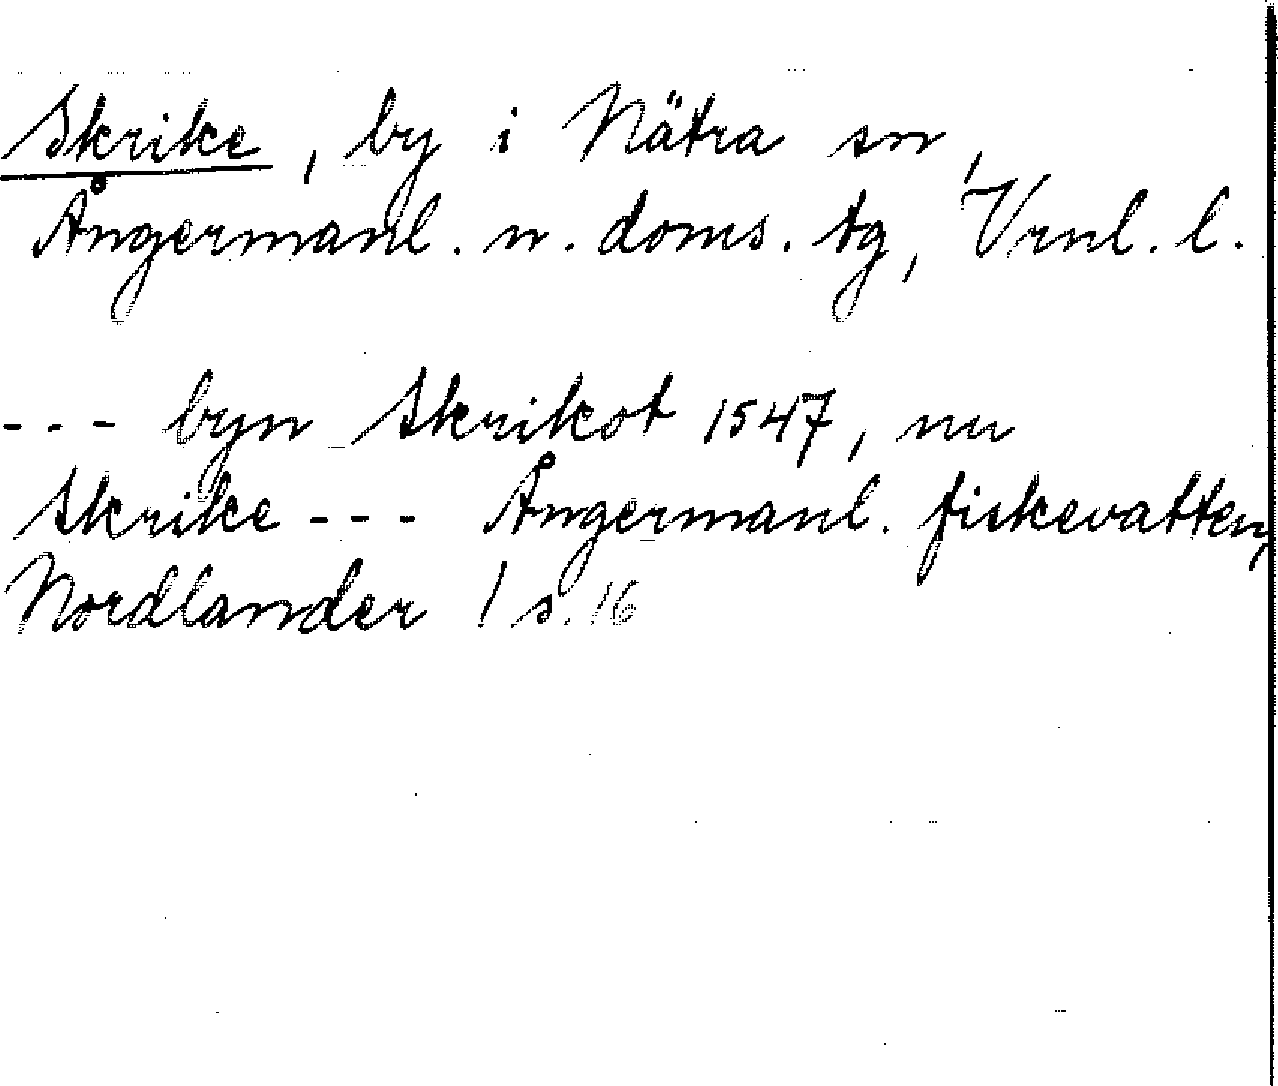 Skrike, by i Nätra sn,
Ångermanl. n. doms. tg, Vrnl. l.
--- byn Skrikot 1547, nu
Skrike --- Ångermanl. fiskevatten,
Nordlander 1 s. 16